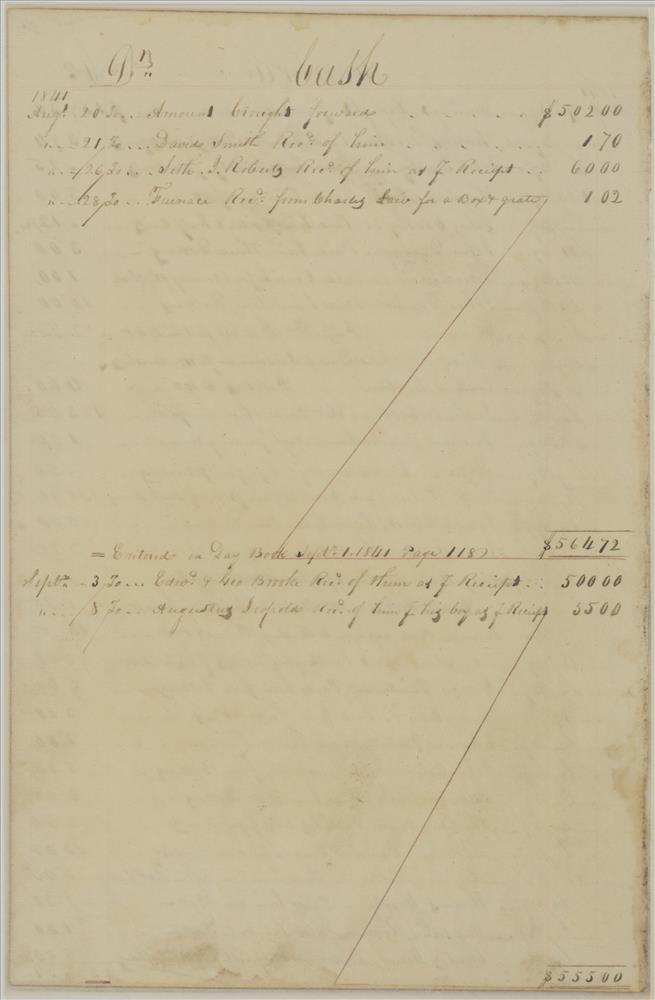 Dr Cash
1841
Augt 20 To .. Amount brought forward . . . . . $ 502 00
" .. 21 To .. David Smith Recd. of him . . . . . . 1.70
" .. 26 To .. Seth I. Roberts Recd. of him as p Receipt . . 60 00
" .. 28 To .. Furnace Recd. from Charles Law for a Box & grate 1 02
= Entered in Day Book Septr. 1. 1841 Page 118 $ 564 72
Septr. 3 To .. Edwd. & Geo Brooke Recd. of them as p Receipt . . 500 00
" .. 8 To .. Augustus Leopold Recd. of him p his boy as p Receipt 55 00
$ 555 00